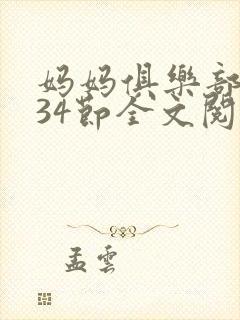 妈妈俱樂部
34節全文閱
孟雲